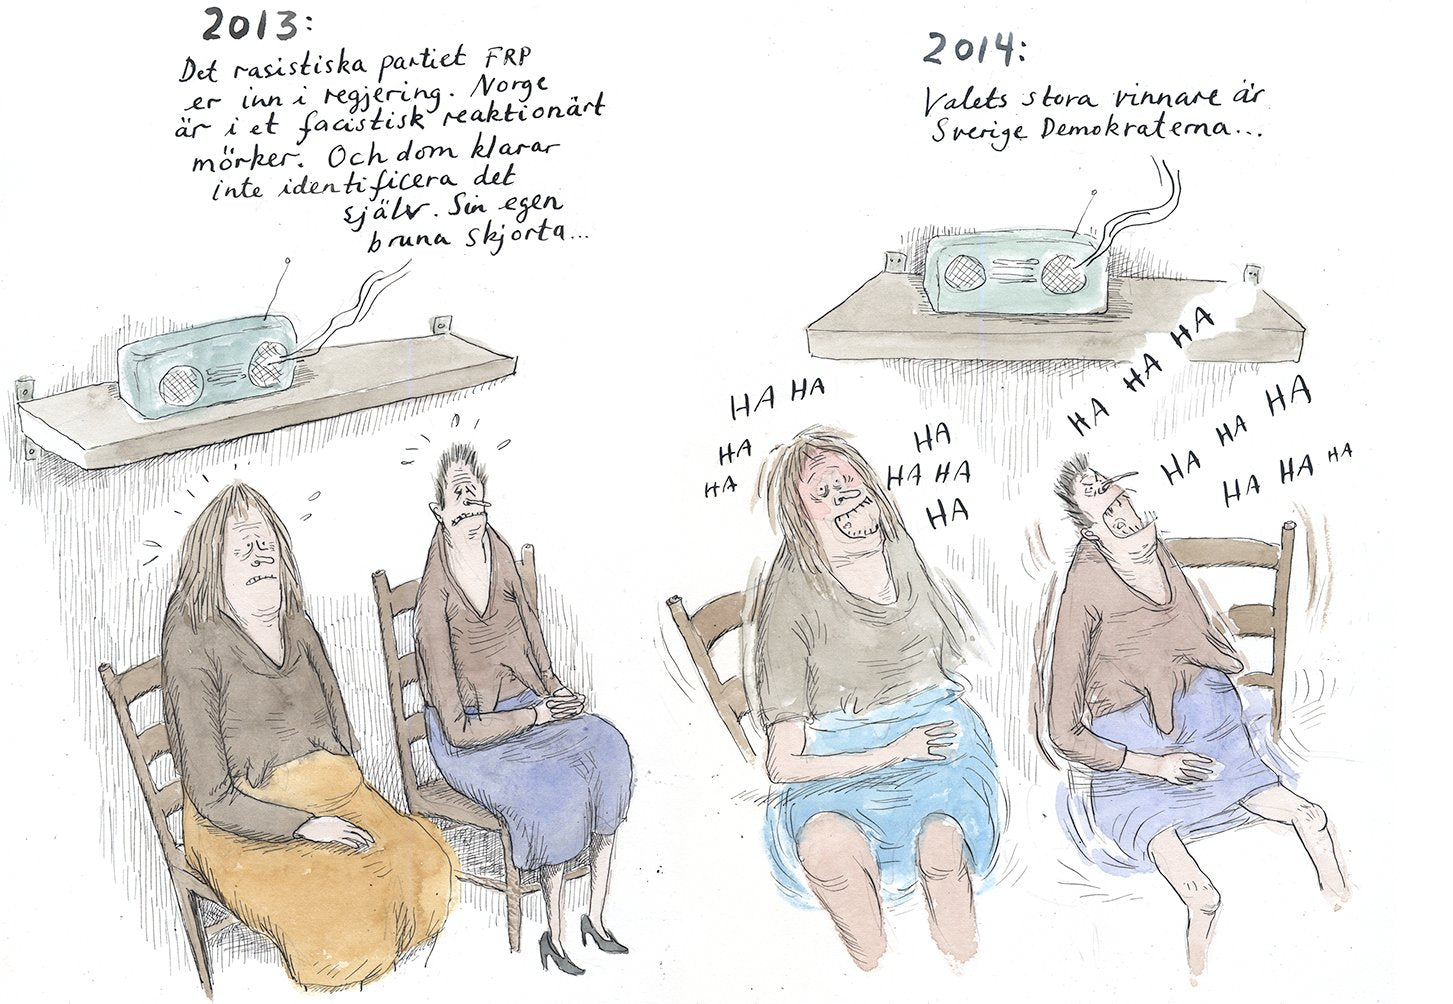 2013:
Det rasistiska partiet FRP
er inn i regjering. Norge
är i et facistisk reaktionärt
mörker. Och dom klarar
inte identificera det
själv. Sin egen
bruna skjorta...
2014:
Valets stora vinnare är
Sverige Demokraterna...
HA HA
HA
HA
HA
HA HA
HA
HA HA HA
HA HA HA
HA HA HA